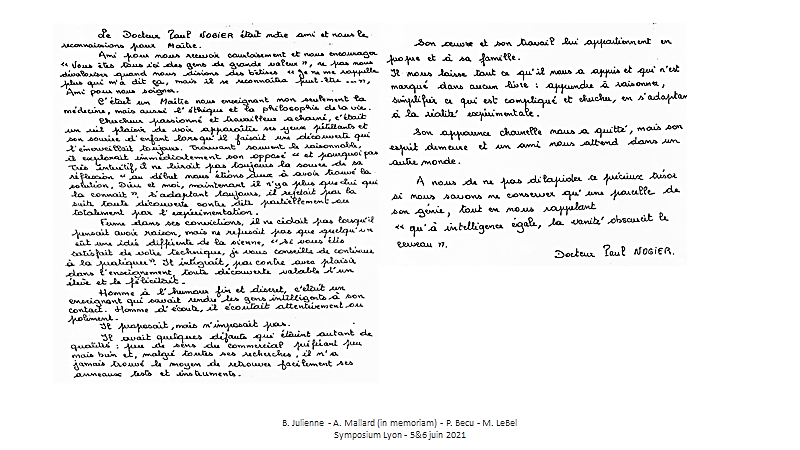 Le Docteur Paul NOGIER était notre ami et nous le
reconnaissions pour Maître.
Ami pour nous recevoir courtoisement et nous encourager
« Vous êtes tous ici des gens de grande valeur », ne pas nous
dévaloriser quand nous disions des bêtises « Je ne me rappelle
plus qui m'a dit ça, mais il se reconnaîtra peut-être .... »,
Ami pour nous soigner.
C'était un Maître nous enseignant non seulement la
médecine, mais aussi l'éthique et la philosophie de la vie.
Chercheur passionné et travailleur acharné, c'était
un réel plaisir de voir apparaître ses yeux pétillants et
son sourire d'enfant lorsqu'il faisait une découverte qui
l'émerveillait toujours. Trouvant souvent le raisonnable,
il explorait immédiatement son opposé « et pourquoi pas
Très intuitif, il ne livrait pas toujours la source de sa
réflexion « au début nous étions deux à avoir trouvé la
solution, Dieu et moi, maintenant il n'y a plus que lui qui
la connait ». S'adaptant toujours, il rejetait par la
suite toute découverte contre dite partiellement ou
totalement par l'expérimentation.
Ferme dans ses convictions, il ne cédait pas lorsqu'il
pensait avoir raison, mais ne refusait pas que quelqu'un
eût une idée différente de la sienne, « si vous êtes
satisfait de votre technique, je vous conseille de continuer
à la pratiquer ». Il intégrait, par contre avec plaisir
dans l'enseignement, toute découverte valable d'un
élève et le félicitait.
Homme à l'humour fin et discret, c'était un
enseignant qui savait rendre les gens intelligents à son
contact. Homme d'écoute, il écoutait attentivement ou
poliment.
Il proposait, mais n'imposait pas.
Il avait quelques défauts qui étaient autant de
qualités : peu de sens du commercial préférant peu
mais bien et, malgré toutes ses recherches, il n'a
jamais trouvé le moyen de retrouver facilement ses
anneaux tests et instruments.
Son œuvre et son travail lui appartiennent en
propre et à sa famille.
Il nous laisse tout ce qu'il nous a appris et qui n'est
marqué dans aucun livre : apprendre à raisonner,
simplifier ce qui est compliqué et chercher, en s'adaptant
à la réalité expérimentale.
Son apparence charnelle nous a quitté, mais son
esprit demeure et un ami nous attend dans un
autre monde.
A nous de ne pas dilapider ce précieux trésor
si nous savons ne conserver qu'une parcelle de
son génie, tout en nous rappelant
« qu'à intelligence égale, la vanité obscurcit le
cerveau ».
Docteur Paul NOGIER.
B. Julienne - A. Mallard (in memoriam) - P. Becu - M. LeBel
Symposium Lyon - 5&6 juin 2021